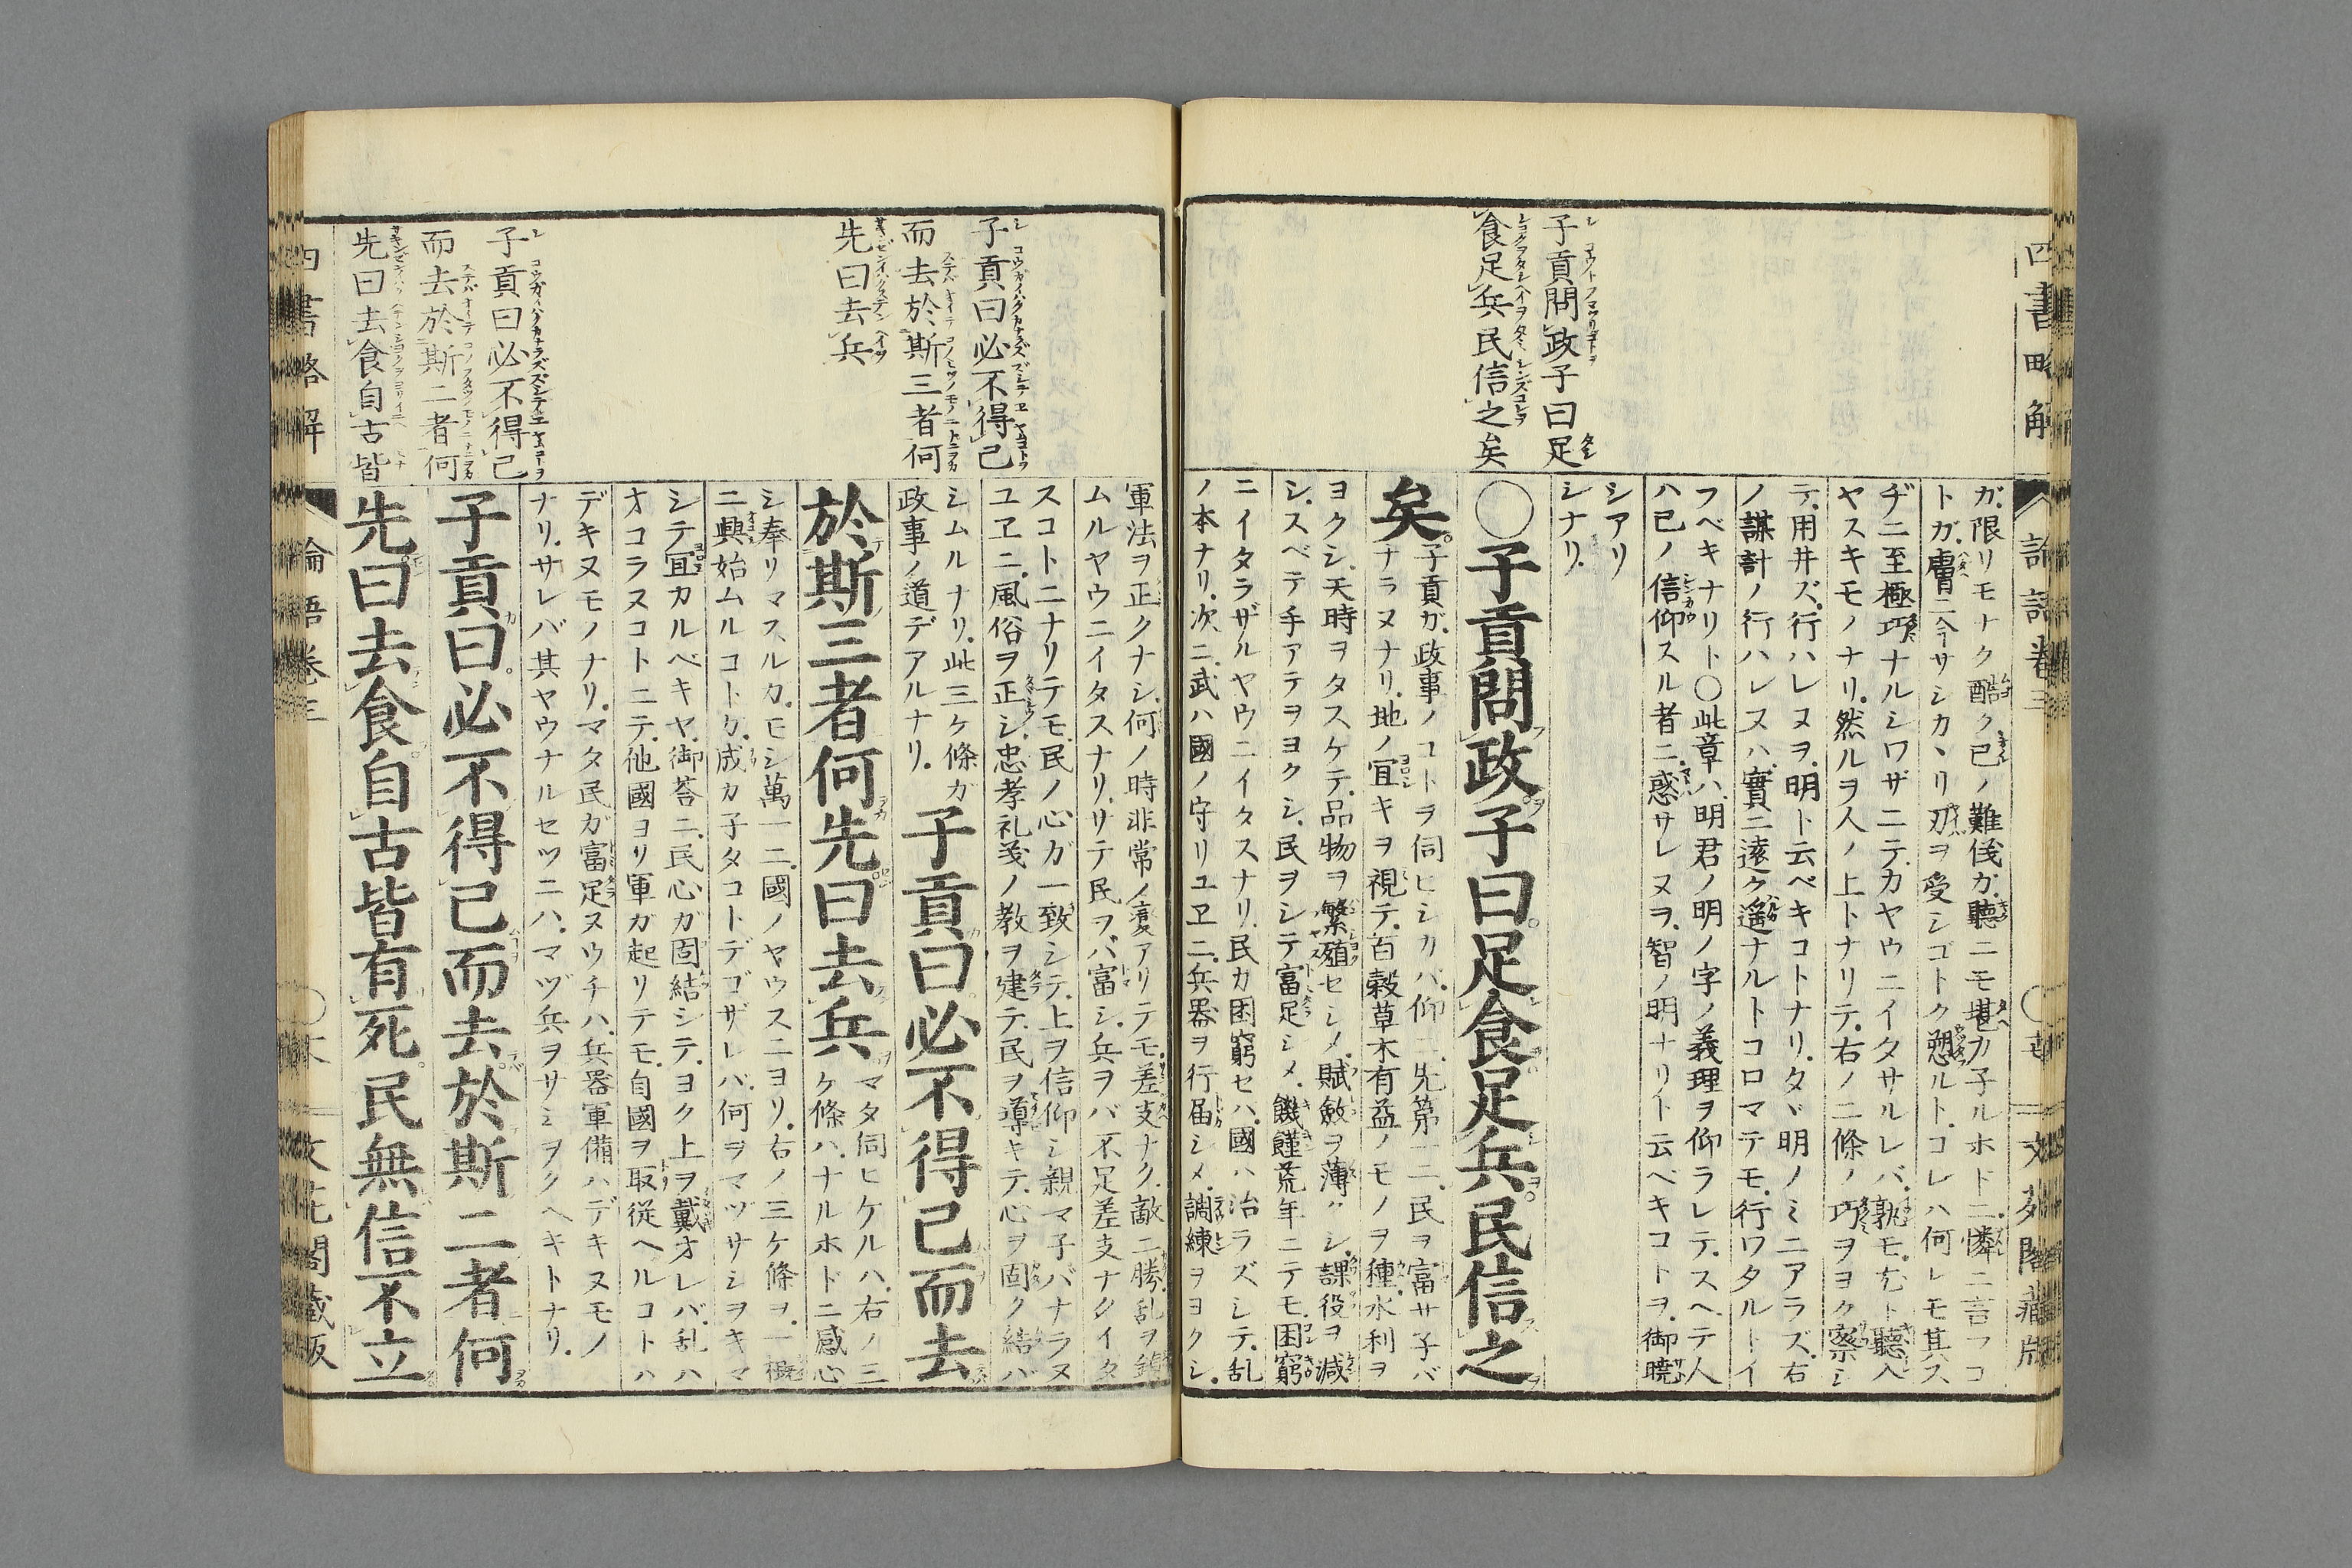 四書略解
論語卷三
文苑閣藏版
ガ限リモナク酷ク己ノ難儀ガ聽ニモ堪カ子ルホドニ憐ニ言フコ
トガ膚ニ今サシカヽリ刃ヲ受シゴトク愬ルトコレハ何レモ其ス
ヂニ至極巧ナルシワザニテカヤウニイタサルレバ孰モ尤ト聽入
ヤスキモノナリ然ルヲ人ノ上トナリテ右ノ二條ノ巧ヲヨク察シ
テ用井ズ行ハレヌヲ明ト云ベキコトナリタヾ明ノミニアラズ右
ノ謀計ノ行ハレヌハ實ニ遠ク遥ナルトコロマテモ行ワタルトイ
フベキナリト〇此章ハ明君ノ明ノ字ノ義理ヲ仰ラレテスヘテ人
ハ己ノ信仰スル者ニ惑サレヌヲ智ノ明ナリト云ベキコトヲ御曉
シアリ
シナリ
子貢問政子曰足
食足兵民信之矣
〇子貢問政子曰足食足兵民信之
矣
子貢ガ政事ノコトヲ伺ヒシカバ仰ニ先第一ニ民ヲ富サ子バ
ナラヌナリ地ノ宜キヲ視テ百穀草木有益ノモノヲ種水利ヲ
ヨクシ天時ヲタスケテ品物ヲ繁殖セシメ賦斂ヲ薄クシ課役ヲ減
シスベテ手アテヲヨクシ民ヲシテ富足シメ饑饉荒年ニテモ困窮
ニイタラザルヤウニイタスナリ民カ困窮セハ國ハ治ラズシテ乱
ノ本ナリ次ニ武ハ國ノ守リユヱニ兵器ヲ行届シメ調練ヲヨクシ
軍法ヲ正クナシ何ノ時非常ノ変アリテモ差支ナク敵ニ勝乱ヲ鎮
ムルヤウニイタスナリサテ民ヲバ富シ兵ヲバ不足差支ナクイタ
スコトニナリテモ民ノ心ガ一致シテ上ヲ信仰シ親マ子バナラヌ
ユヱニ風俗ヲ正シ忠孝礼義ノ教ヲ建テ民ヲ導キテ心ヲ固ク結ハ
シムルナリ此三ケ條ガ
政事ノ道デアルナリ
子貢曰必不得已
而去於斯三者何
先曰去兵
子貢曰必不得已而去
於斯三者何先曰去兵
マタ伺ヒケルハ右ノ三
ケ條ハナルホドニ感心
シ奉リマスルカモシ萬一ニ國ノヤウスニヨリ右ノ三ケ條ヲ一概
ニ興始ムルコトガ成カ子タコトデゴザレバ何ヲマヅサシヲキマ
シテ宜カルベキヤ御荅ニ民心ガ固結シテヨク上ヲ戴オレバ乱ハ
オコラヌコトニテ他國ヨリ軍ガ起リテモ自國ヲ取従ヘルコトハ
デキヌモノナリマタ民ガ富足ヌウチハ兵器軍備ハデキヌモノ
ナリサレバ其ヤウナルセツニハマヅ兵ヲサシヲクヘキトナリ
子貢曰必不得已
而去於斯二者何
先曰去食自古皆
子貢曰必不得已而去於斯二者何
先曰去食自古皆有死民無信不立
四書略解
論語卷三
文苑閣藏版